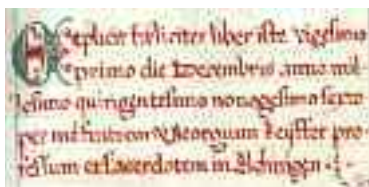 Explicit feliciter liber iste vigesimo
primo die Decembris anno mil
lesimo quingentesimo nonagesimo sexto
per me fratrem Georgium Keyster pro
fessum et sacerdotem in